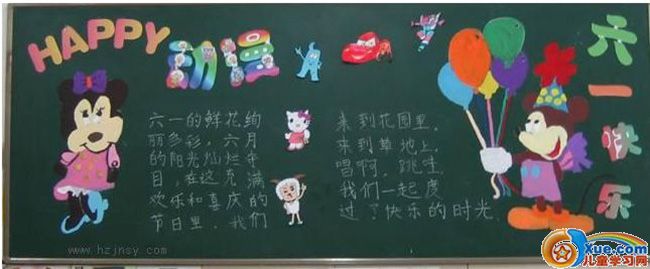 HAPPY
动漫
六一快乐
六一的鲜花绚
丽多彩，六月
的阳光灿烂夺
目，在这充满
欢乐和喜庆的
节日里，我们
来到花园里，
来到草地上，
唱啊，跳哇，
我们一起度
过了快乐的时光
www.hzjnsy.com
Xue.com
儿童学习网